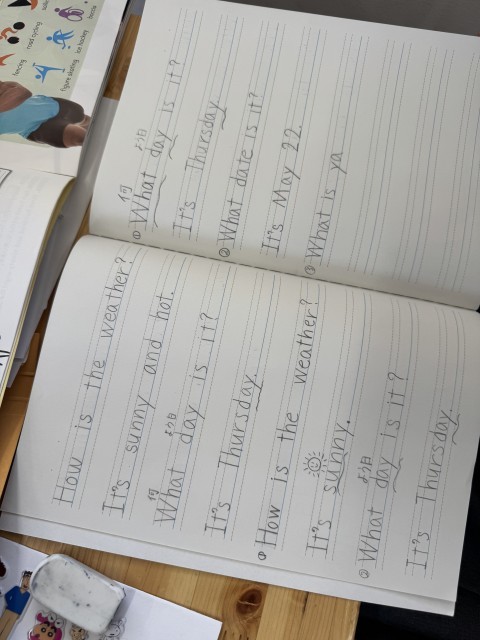 How is the weather?
It's sunny and hot.
何 よう日
What day is it?
It's Thursday.
① How is the weather?
It's sunny.
よう日
② What day is it?
It's Thursday.
何 よう日
① What day is it?
It's Thursday
② What date is it?
It's May 22.
③ What is ya
fencing
road cycling
figure skating
ice hockey